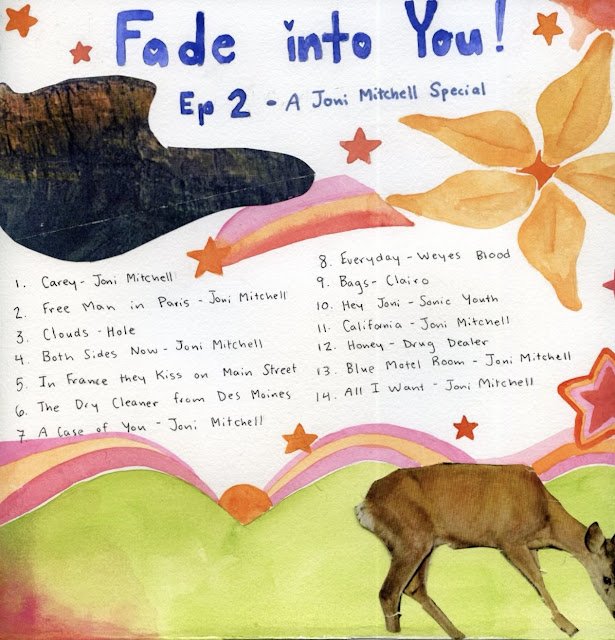 Fade into You!
Ep 2 - A Joni Mitchell Special
1. Carey - Joni Mitchell
2. Free Man in Paris - Joni Mitchell
3. Clouds - Hole
4. Both Sides Now - Joni Mitchell
5. In France they Kiss on Main Street
6. The Dry Cleaner from Des Moines
7. A Case of You - Joni Mitchell
8. Everyday - Weyes Blood
9. Bags - Clairo
10. Hey Joni - Sonic Youth
11. California - Joni Mitchell
12. Honey - Drug Dealer
13. Blue Motel Room - Joni Mitchell
14. All I Want - Joni Mitchell